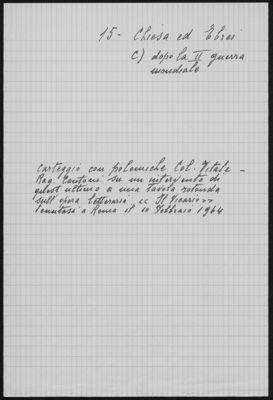 15- Chiesa ed Ebrei
C) dopo la II guerra
mondiale
Carteggio con polemiche Col. Vitale -
Rag. Cantoni su un intervento di
quest'ultimo a una tavola rotonda
sull'opera letteraria << Il Vicario >>
tenutasi a Roma il 10 Febbraio 1964